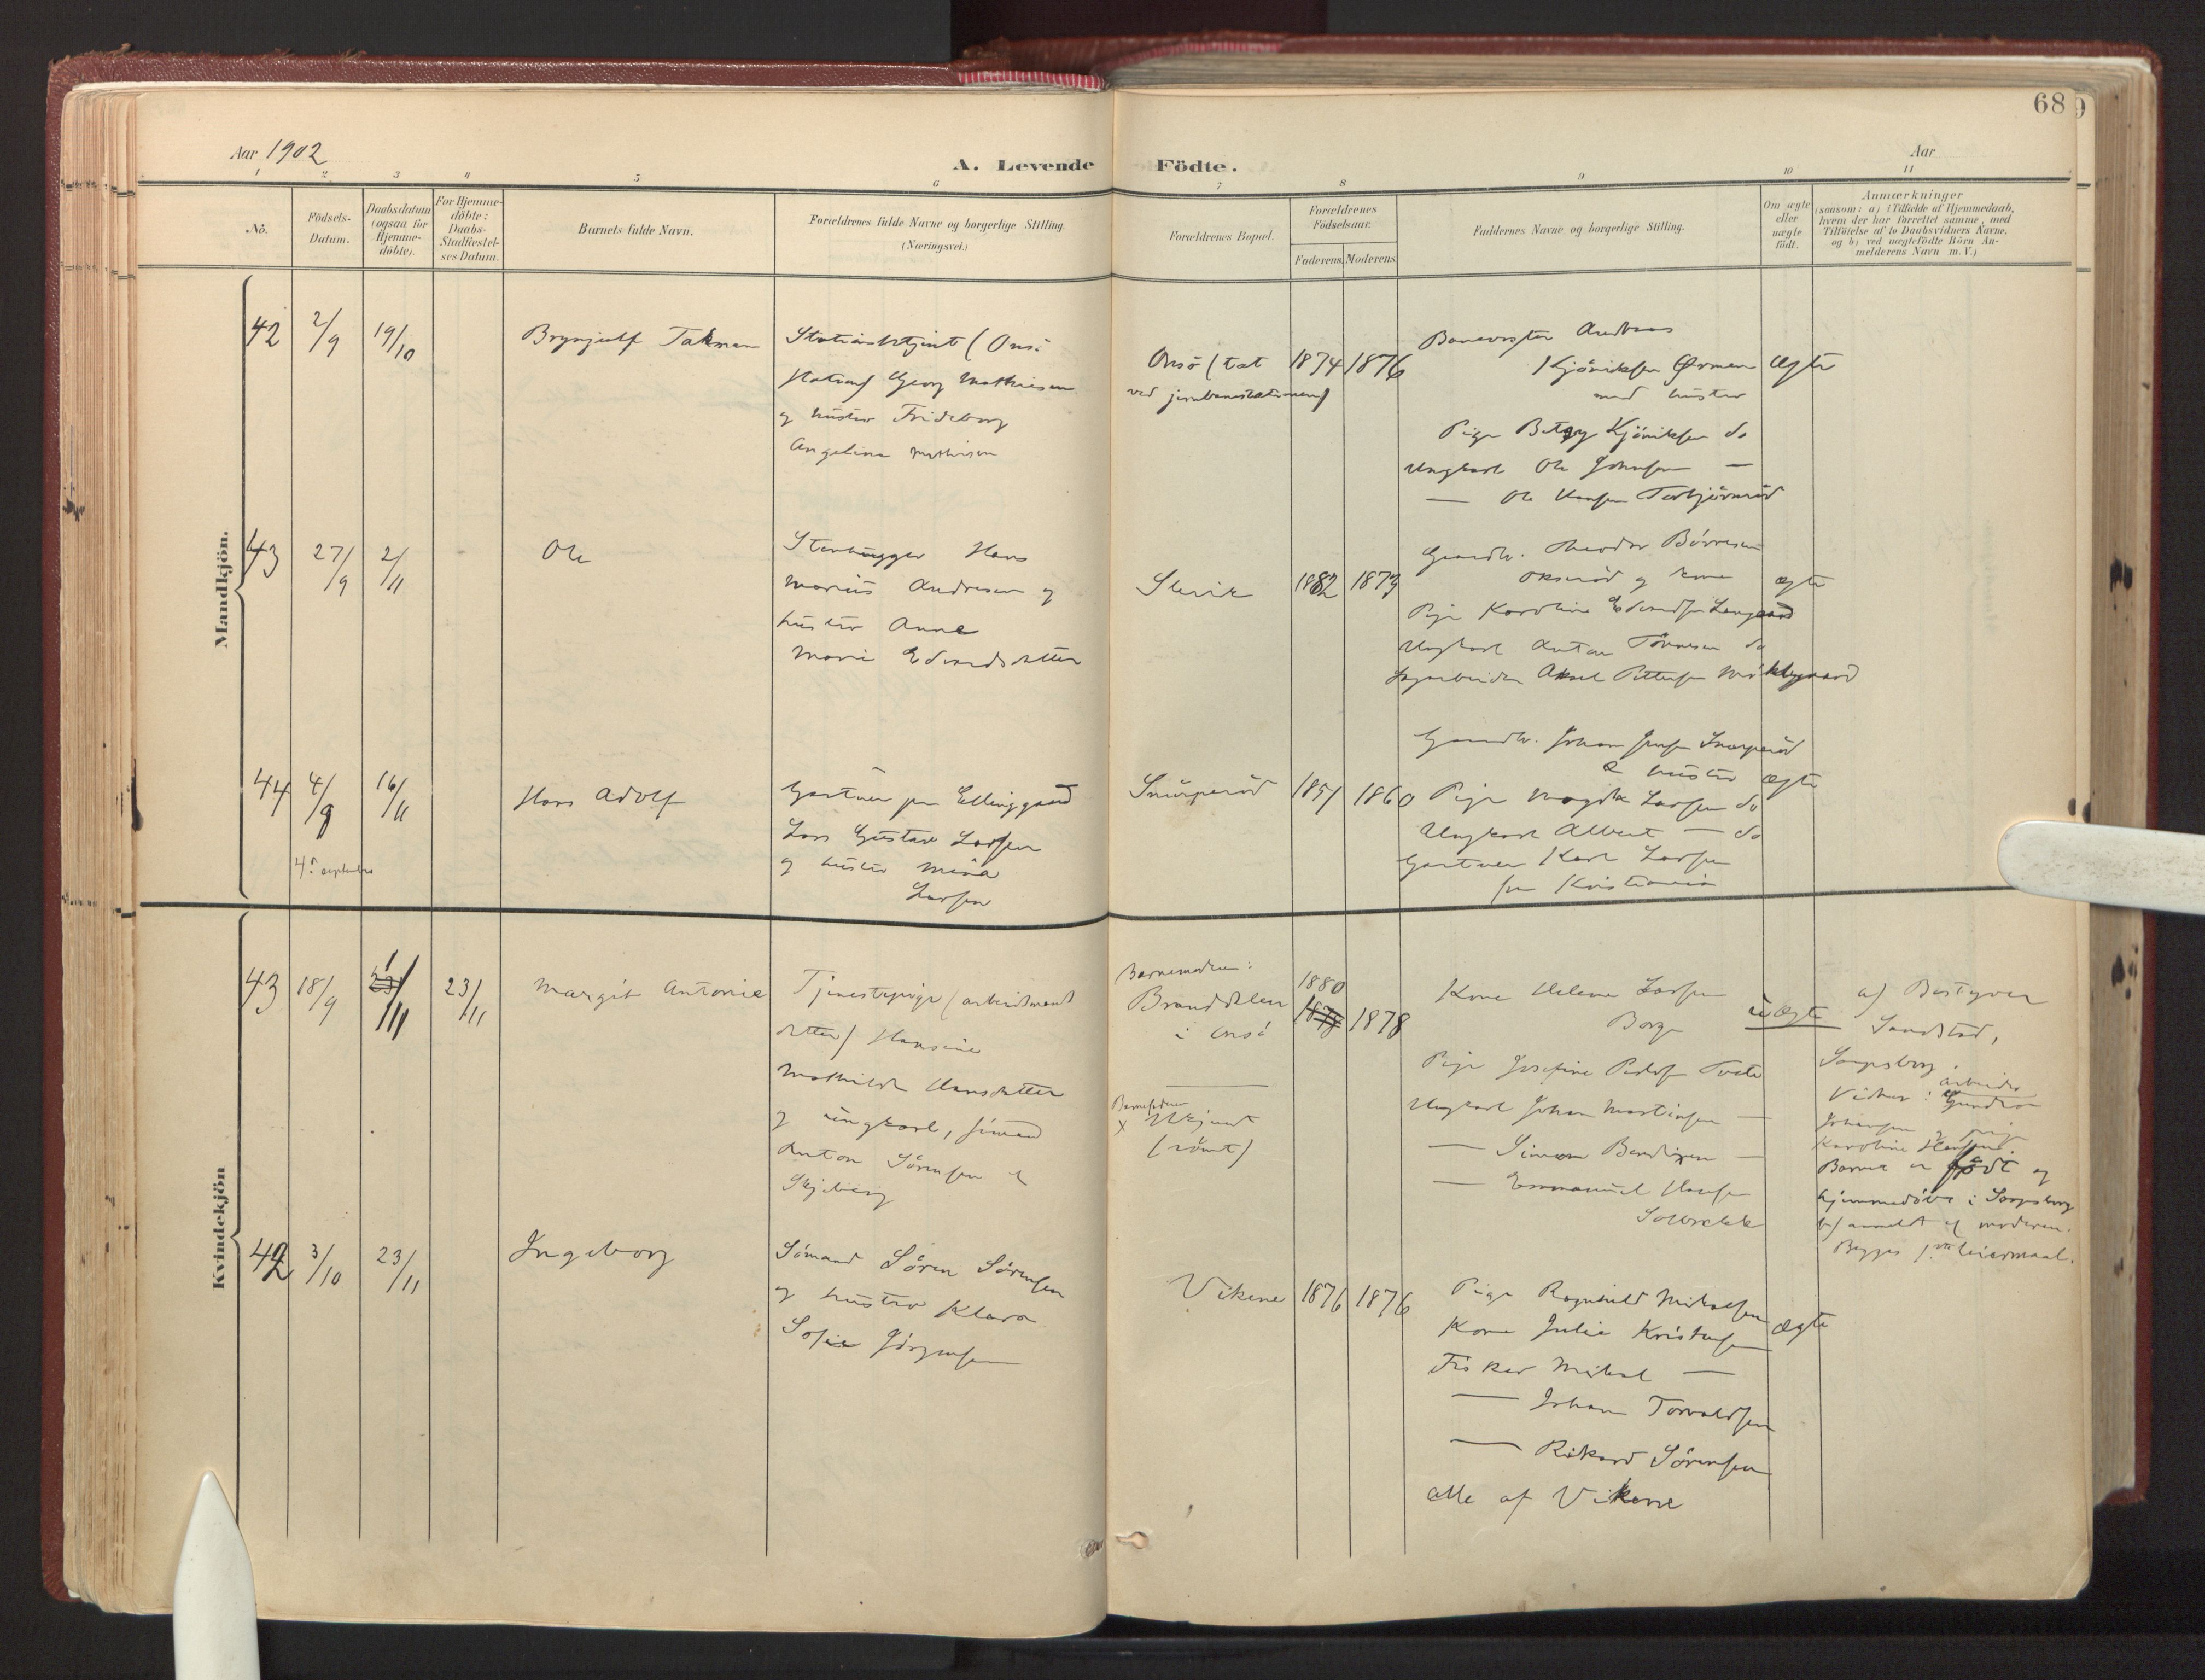 68
Aar 1902
A. Levende Födte.
Aar
1 2 3 4 5 6 7 8 9 10 11
No.
Födsels-
Datum.
Daabsdatum
(ogsaa for
Hjemme-
döbte).
For Hjemme-
döbte:
Daabs-
Stadfæstel-
ses Datum.
Barnets fulde Navn.
Forældrenes fulde Navne og borgerlige Stilling.
(Næringsvei.)
Forældrenes Bopæl.
Forældrenes
Födselsaar.
Faderens. Moderens.
Faddernes Navne og borgerlige Stilling.
Om ægte
eller
uægte
födt.
Anmærkninger
(saasom: a) i Tilfælde af Hjemmedaab,
hvem der har forrettet samme, med
Tilföielse af to Daabsvidners Navne,
og b) ved uægtefödte Börn An-
melderens Navn m. V.)
Mandkjön.
42 2/9 19/10
Brynjulf Takman
Georg Mathisen
og hustru Frideborg
Angelina Mathisen
Onsö (tæt
ved jernbanestationen)
1874 1876
Andreas
Kjöniksen
med hustru
Pige Betzy Kjöniksen do
Ungkarl Ole Johnsen —
— Ole Hansen Torbjörnröd
Ægte
43 27/9 2/11
Ole
Stenhugger Hans
Marius Andresen og
hustru Anne
Marie Edvardsdatter
Slevik
1882 1873
Gaardbr. Theodor Börresen
og kone
Pige Karoline Edvardsen
Ungkarl Anton Tönnesen do
Aksel Pettersen
ægte
44 4/9 16/11
4. september
Hans Adolf
Gartner paa Ellinggaard
Lars Gustav Larsen
og hustru Mina
Larsen
Snörperöd
1851 1860
Gaardbr. Johan Jensen Snörperöd
& hustru
Pige Magda Larsen do
Ungkarl Albert — do
Gartner Karl Larsen
fra Kristiania
ægte
Kvindekjön
43 18/9 1/11 23/11
Margit Antonie
Tjenestepige (arbeidsmands
datter) Hansine
Mathilde Hansdatter
og ungkarl, sömand
Anton Sörensen af
Skjeberg
Barnemoderen:
i Onsö
Barnefaderen
x Ukjendt
(römt)
1880
1878
Kone Helene Larsen
Borge
Pige Josefine
Ungkarl Johan Martinsen —
— Simon —
— Emmanuel Hansen
Solbrekke
uægte
a) Bestyrer
Sandstad,
Sarpsborg.
Vidner: arbeider
Johansen og pige
Karoline Hansen.
Barnet er födt og
hjemmedöbt i Sarpsborg
b) anmeldt af moderen.
Begges 1ste leiermaal.
42 3/10 23/11
Ingeborg
Sömand Sören Sörensen
og hustru Klara
Sofie Jörgensen
Vikene
1876 1876
Pige Ragnhild Mikalsen
Kone Julie Kristensen
Fisker Mikal —
— Johan Torvaldsen
— Rikard Sörensen
alle af Vikene
Ægte